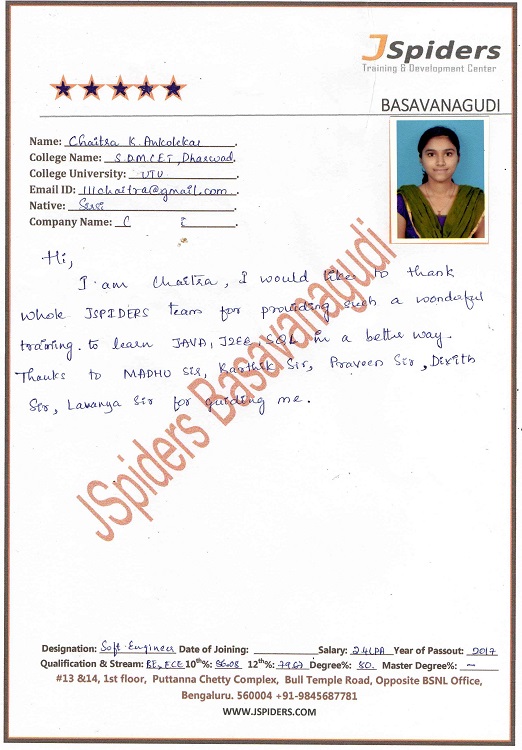 JSpiders
Training & Development Center
BASAVANAGUDI
Name: Chaitra K. Ankolekar.
College Name: S.D.M.C.E.T, Dharwad.
College University: VTU.
Email ID: 111chaitra@gmail.com.
Native: Sirsi.
Company Name: C i.
Hi,
I am Chaitra, I would like to thank
whole JSPIDERS team for providing such a wonderful
training. to learn JAVA, J2EE, SQL in a better way.
Thanks to MADHU sir, Karthik Sir, Praveen Sir, Dixith
Sir, Lavanya Sir for guiding me.
JSpiders Basavanagudi
Designation: Soft. Engineer Date of Joining: Salary: 2.4LPA Year of Passout: 2017
Qualification & Stream: BE, ECE 10th%: 86.08 12th%: 79.67 Degree%: 80. Master Degree%: —
#13 &14, 1st floor, Puttanna Chetty Complex, Bull Temple Road, Opposite BSNL Office,
Bengaluru. 560004 +91-9845687781
WWW.JSPIDERS.COM